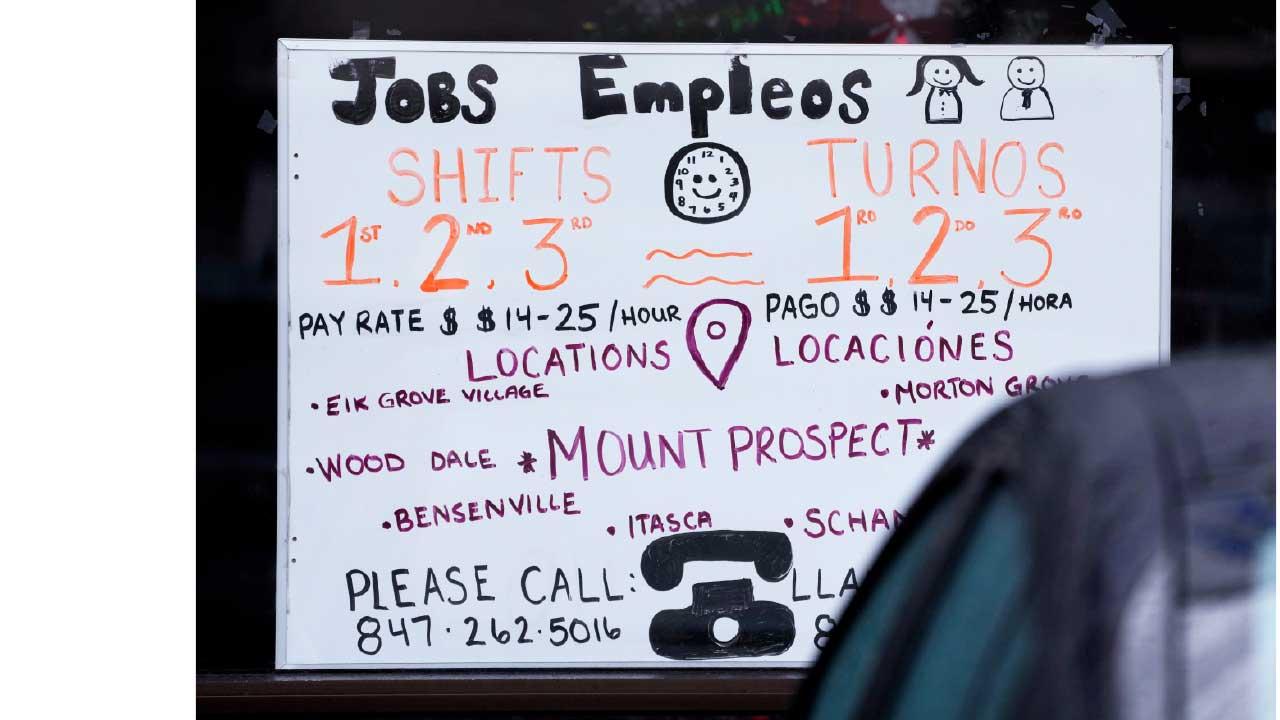 JOBS Empleos
SHIFTS TURNOS
1ST, 2ND, 3RD 1RO, 2DO, 3RO
PAY RATE $ $14-25/HOUR PAGO $ $ 14-25/HORA
LOCATIONS LOCACIÓNES
• ElK GROVE VILLAGE • MORTON GROVE
• WOOD DALE * MOUNT PROSPECT *
• BENSENVILLE • ITASCA
PLEASE CALL:
847·262·5016